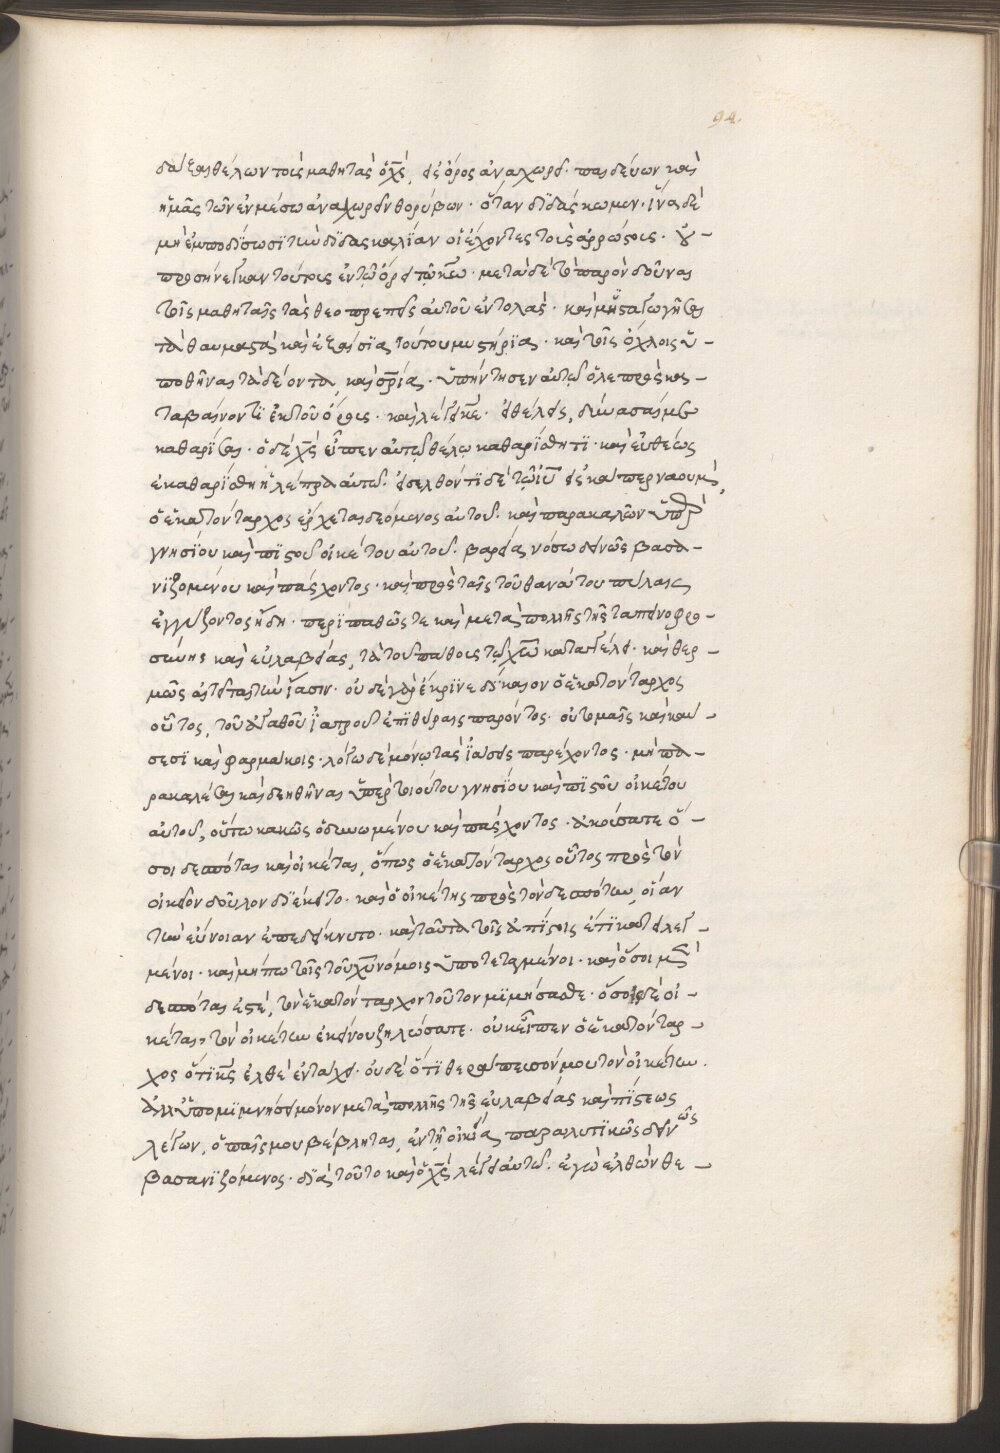 94
διδάξαι θέλων τοὺς μαθητὰς ὁ χς, εἰς ὄρος ἀναχωρεῖ· παιδεύων καὶ
ἡμᾶς τῶν ἐν μέσω ἀναχωρεῖν θορύβων· ὅταν διδάσκωμεν· ἵνα δὲ
μὴ ἐμποδίσωσϊ τὴν διδασκαλίαν οἱ ἔχοντες τοὺς ἀρρώστους· οὐ –
προσήνεγκαν τούτους ἐν τῷ ὄρει τῷ κω· μετὰ δὲ τὸ παρὸν δοῦναι
τοῖς μαθηταῖς τὰς θεοπρεπεῖς αὐτοῦ ἐντολὰς· καὶ μυσταγωγῆσαι
τὰ θαυμαστὰ καὶ ἐξαίσϊα τούτου μυστήρϊα· καὶ τοῖς ὄχλοις ὑ –
ποθῆναι τὰ δέοντα, καὶ σρίας· ὑπήντησεν αὐτῷ ὁ λεπρὸς κα –
ταβαίνοντϊ ἐκ τοῦ ὄρους· καὶ λέγει κε· εἰ θέλεις, δύνασαί με
καθαρίσαι· ὁ δὲ χς εἶπεν αὐτῷ θέλω καθαρίσθητϊ· καὶ εὐθέως
ἐκαθαρίσθη ἡ λέπρα αὐτοῦ· εἰσελθόντϊ δὲ τῷ ιυ εἰς καπερναοὺμ,
ὁ ἑκατόνταρχος ἔρχεται δεόμενος αὐτοῦ· καὶ παρακαλῶν ὑπὲρ
γνησίου καὶ πϊστοῦ οἰκέτου αὐτοῦ· βαρεία νόσω δεινῶς βασα –
νϊζομένου καὶ πάσχοντος· καὶ πρὸς ταῖς τοῦ θανάτου πύλαις
ἐγγίζοντος ἤδη· περϊπαθῶς τε καὶ μετὰ πολλῆς τῆς ταπεινοφρο –
σύνης καὶ εὐλαβείας, τὰ τοῦ πάθους τῷ χω καταγγέλει· καὶ θερ –
μῶς αἰτεῖται τὴν ἴασιν· οὐδὲ γὰρ ἔκρϊνε δίκαιον ὁ ἑκατόνταρχος
οὗτος, τοῦ ἀγαθοῦ ἰατροῦ ἐπϊ θύραις παρόντος· οὐ τομαῖς καὶ καύ –
σεσϊ καὶ φαρμάκοις· λόγω δὲ μόνω τὰς ἰάσεις παρέχοντος· μὴ πα –
ρακαλέσαι καὶ δεηθῆναι ὑπὲρ τοιούτου γνησίου καὶ πϊστοῦ οἰκέτου
αὐτοῦ, οὕτω κακῶς ὀδυνωμένου καὶ πάσχοντος· ἀκούσατε ὅ –
σοι δεσπόται καὶ οἰκέται, ὅπως ὁ ἑκατόνταρχος οὗτος πρὸς τὸν
οἰκεῖον δοῦλον δϊέκειτο· καὶ ὁ οἰκέτης πρὸς τὸν δεσπότην, οἵαν
τὴν εὔνοιαν ἐπεδείκνυτο· καὶ ταῦτα τοῖς ἀπίστοις ἔτϊ κατειλεγ –
μένοι· καὶ μήπω τοῖς τοῦ χυ νόμοις ὑποτεταγμένοι· καὶ ὅσοι μὲν
δεσπόται ἐστὲ, τὸν ἑκατόνταρχον τοῦτον μϊμήσασθε· ὅσοι δὲ οἰ –
κέται, τὸν οἰκέτην ἐκείνου ζηλώσατε· οὐκ εἶπεν ὁ ἑκατόνταρ –
χος ὅτϊ κε ἐλθὲ ἐνταῦθα· οὐδὲ ὅτϊ θεράπευσόν μου τὸν οἰκέτην·
ἀλλ' ὑπομϊμνήσκει μόνον μετὰ πολλῆς τῆς εὐλαβείας καὶ πίστεως
λέγων, ὁ παῖς μου βέβληται, ἐν τῇ οἰκία, παραλυτϊκῶς δεινῶς
βασανϊζόμενος· δϊὰ τοῦτο καὶ ὁ χς λέγει αὐτῷ· ἐγὼ ἐλθὼν θε –